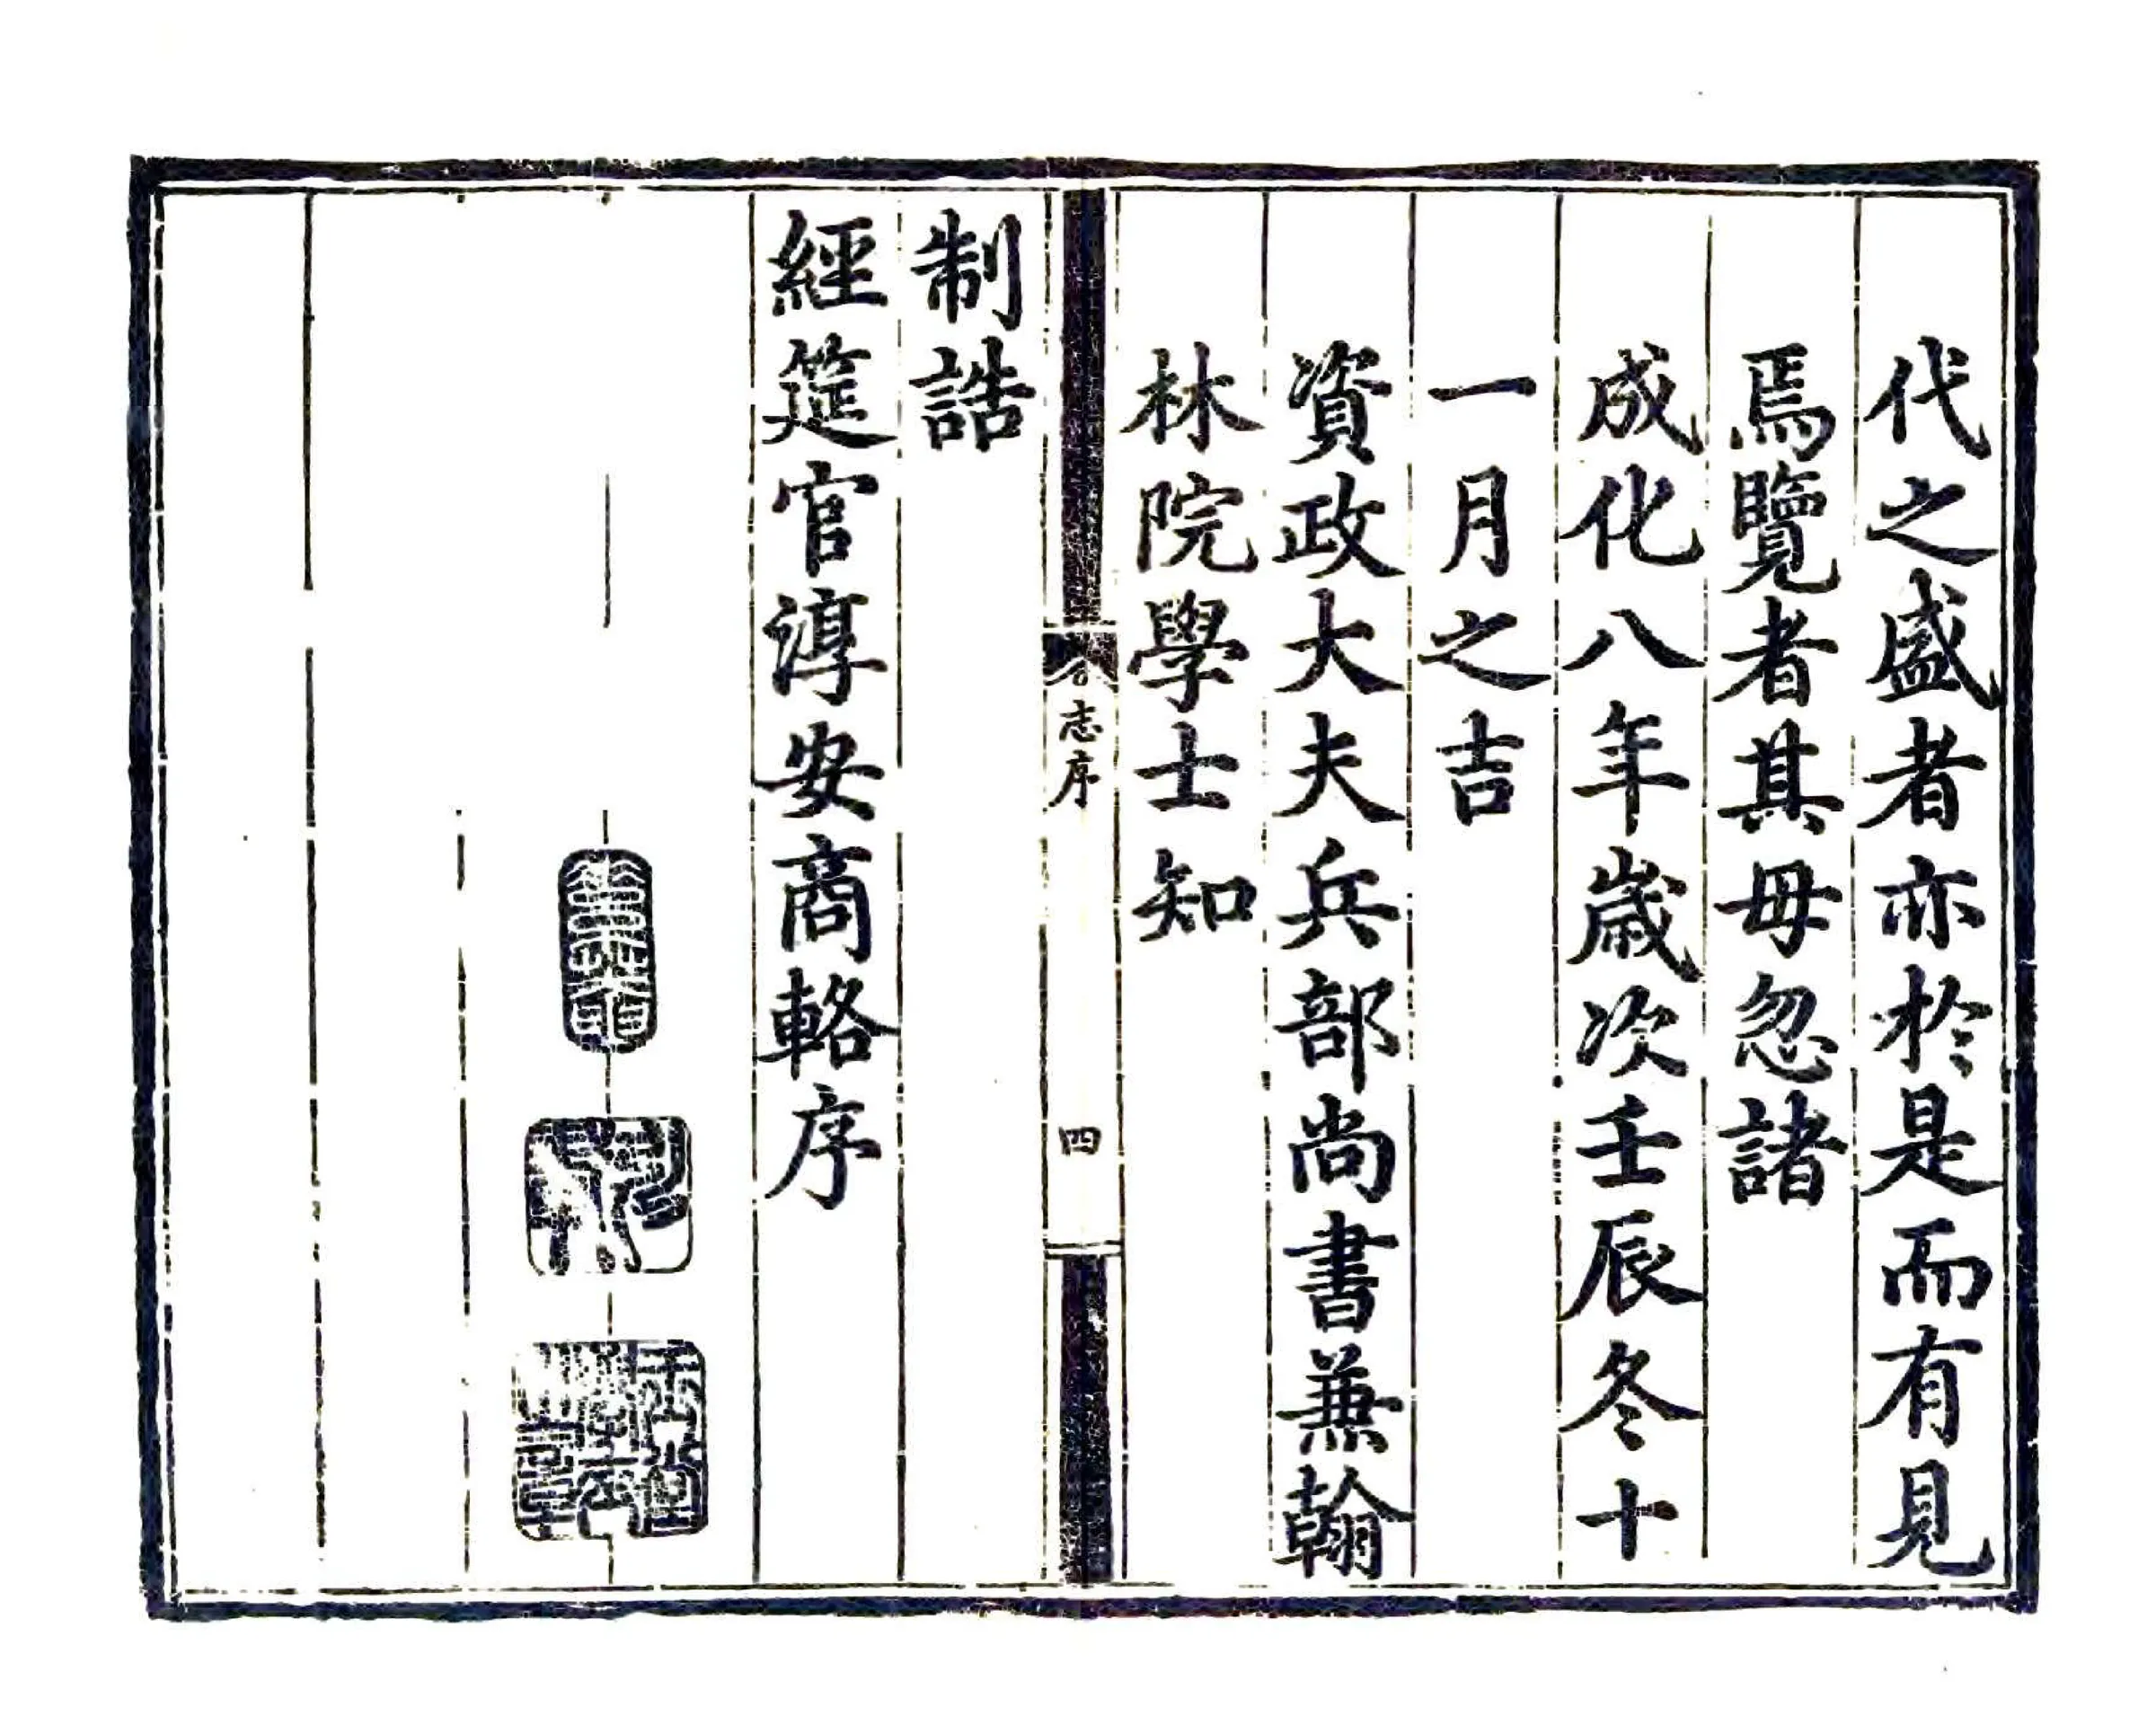 代之盛者亦於是而有見
焉覽者其毋忽諸
成化八年歲次壬辰冬十
一月之吉
資政大夫兵部尚書兼翰
林院學士知
志序
四
制誥
經筵官淳安商輅序